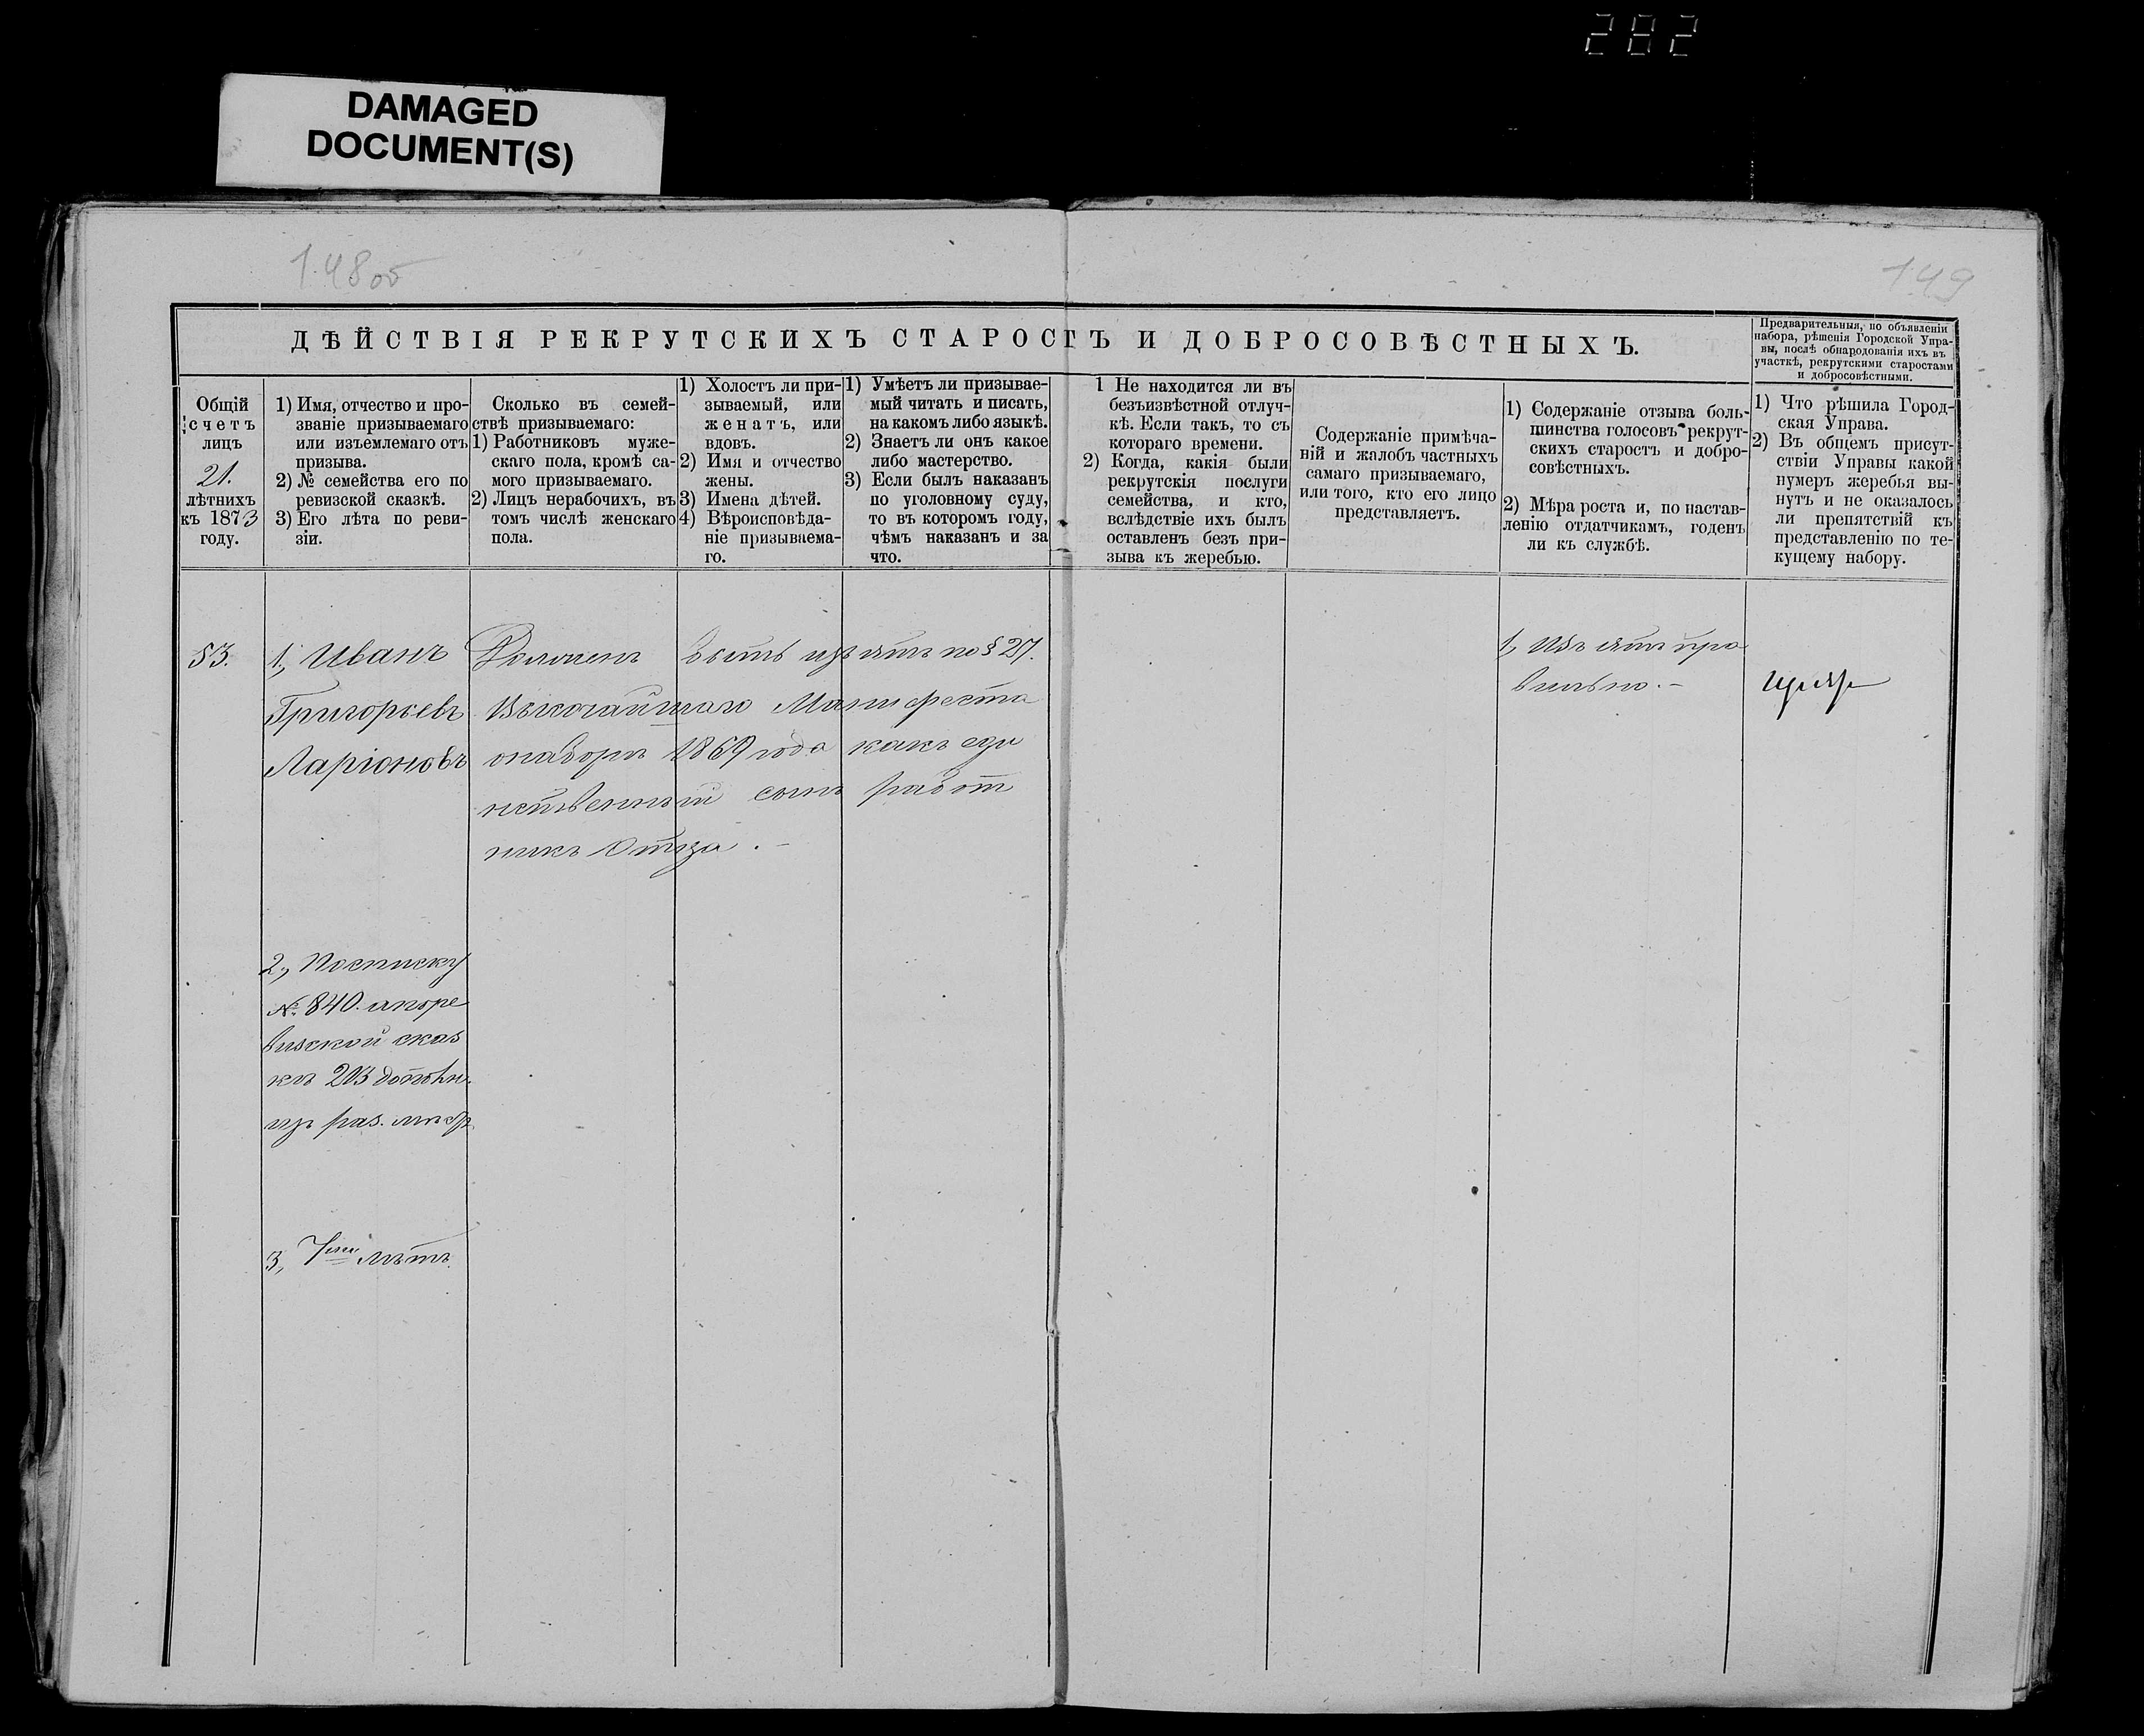 282
DAMAGED
DOCUMENT(S)
148 об
149
ДѢЙСТВІЯ РЕКРУТСКИХЪ СТАРОСТЪ И ДОБРОСОВѢСТНЫХЪ.
Предварительныя, по объявленіи
набора, рѣшенія Городской Упра-
вы, послѣ обнародованія ихъ въ
участкѣ, рекрутскими старостами
и добросовѣстными.
Общій
счетъ
лицъ
21.
лѣтнихъ
къ 1873
году.
1) Имя, отчество и про-
званіе призываемаго
или изъемлемаго отъ
призыва.
2) № семейства его по
ревизской сказкѣ.
3) Его лѣта по реви-
зіи.
Сколько въ семей-
ствѣ призываемаго:
1) Работниковъ муже-
скаго пола, кромѣ са-
мого призываемаго.
2) Лицъ нерабочихъ, въ
томъ числѣ женскаго
пола.
1) Холостъ ли при-
зываемый, или
женатъ, или
вдовъ.
2) Имя и отчество
жены.
3) Имена дѣтей.
4) Вѣроисповѣда-
ніе призываема-
го.
1) Умѣетъ ли призывае-
мый читать и писать,
на какомъ либо языкѣ.
2) Знаетъ ли онъ какое
либо мастерство.
3) Если былъ наказанъ
по уголовному суду,
то въ которомъ году,
чѣмъ наказанъ и за
что.
1 Не находится ли въ
безъизвѣстной отлуч-
кѣ. Если такъ, то съ
котораго времени.
2) Когда, какія были
рекрутскія послуги
семейства, и кто,
вслѣдствіе ихъ былъ
оставленъ безъ при-
зыва къ жеребью.
Содержаніе примѣча-
ній и жалобъ частныхъ
самаго призываемаго,
или того, кто его лицо
представляетъ.
1) Содержаніе отзыва боль-
шинства голосовъ рекрут-
скихъ старостъ и добро-
совѣстныхъ.
2) Мѣра роста и, по настав-
ленію отдатчикамъ, годенъ
ли къ службѣ.
1) Что рѣшила Город-
ская Управа.
2) Въ общемъ присут-
ствіи Управы какой
нумеръ жеребья вы-
нутъ и не оказалось
ли препятствій къ
представленію по те-
кущему набору.
53.
1, Иванъ
Григорьевъ
Ларіоновъ
Долженъ быть изъятъ по § 27.
Высочайшаго Манифеста
о наборѣ 1869 года какъ еди
нственный сынъ работ
никъ Отца. –
1, Изъятъ пра
вильно. –
2, По списку
№ 840. а по ре
визской сказ
кѣ 203 дополн.
3, 7ми лѣтъ.